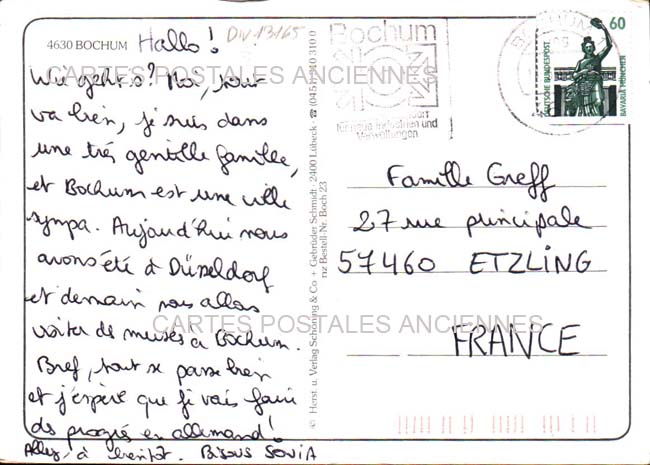 4630 BOCHUM
Hallo!
DIV 13165
Wie geht's? Moi, tout
va bien, je suis dans
une très gentille famille,
et Bochum est une ville
sympa. Aujourd'hui nous
avons été à Düsseldorf
et demain nous allons
visiter des musés à Bochum.
Bref, tout se passe bien
et j'espère que je vais faire
des progrès en allemand!
Allez, à bientôt. Bisous SONIA
© Herst. u. Verlag Schöning & Co + Gebrüder Schmidt · 2400 Lübeck · ☎ (0451)
rnz Bestell-Nr. Boch 23
Bochum
für neue Industrien und
Verwaltungen
BOCHUM
60
DEUTSCHE BUNDESPOST
BAVARIA MÜNCHEN
Famille Greff
27 rue principale
57460 ETZLING
FRANCE
CARTES POSTALES ANCIENNES
CARTES POSTALES ANCIENNES